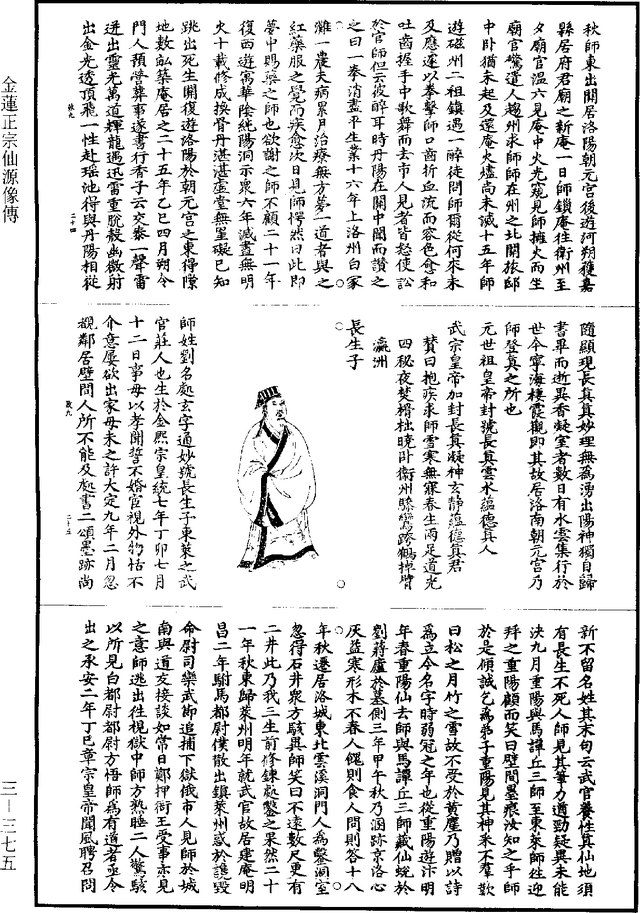 金蓮正宗仙源像傳
秋師東出關居洛陽朝元宮後遊河朔獲嘉
縣居府君廟之新庵一日師鎖庵往衛州至
夕廟官溫六見庵中火光窺見師擁火而坐
廟官驚遣人趨衛州求師師在州之北關旅邸
中臥猶未起及還庵火爐尚未滅十五年師
遊磁州二祖鎮遇一醉徒問師爾從何來未
及應遂以拳擊師口齒折血流而容色愈和
吐齒握手中歌舞而去市人見者皆怒使訟
於官師但云彼醉耳時丹陽在關中聞而讚之
之曰一拳消盡平生業十六年上洛州白家
灘一農夫病累月治療無方夢一道者與之
紅藥服之覺而疾愈次日見師愕然曰此即
夢中賜藥之師也欲謝之師不顧二十一年
復西遊寓華陰純陽洞示眾六年滅盡無明
火十載修成換骨丹湛湛虛堂無罣礙已知
跳出死生關復遊洛陽於朝元宮之東得隙
地數畝築庵居之二十五年乙巳四月朔令
門人預營葬事遂書行香子云交泰一聲雷
迸出靈光萬道輝龍遇迅雷重脫殼幽微射
出金光透頂飛一性赴瑤池得與丹陽相從
隨顯現長真真妙理無為湧出陽神獨自歸
書畢而逝異香凝室者數日有水雲集行於
世今寧海棲霞觀即其故居洛南朝元宮乃
師登真之所也
元世祖皇帝封號長真雲水蘊德真人
武宗皇帝加封長真凝神玄靜蘊德真君
贊曰抱疾求師雪寒無寐春生兩足道光
四祕夜焚榾柮曉臥衛州驂鸞跨鶴掉臂
瀛洲
長生子
師姓劉名處玄字通妙號長生子東萊之武
官莊人也生於金熙宗皇統七年丁卯七月
十二日事母以孝聞誓不婚宦視外物恬不
介意屢欲出家母未之許大定九年二月忽
觀鄰居壁間人所不能及處書二頌墨跡尚
新不留名姓其末句云武官養性真仙地須
有長生不死人師見其筆力遒勁疑異未能
決九月重陽與馬譚丘三師至東萊師往迎
拜之重陽顧而笑曰壁間墨痕汝知之乎師
於是傾誠乞為弟子重陽見其神采不羣歎
曰松之月竹之雪故不受於黃塵乃贈以詩
為立今名字時弱冠之年也從重陽遊汴明
年春重陽仙去師與馬譚丘三師藏仙蛻於
劉蔣廬於墓側三年甲午秋乃洒跡京洛心
灰益寒形木不春人饋則食人問則答十八
年秋遷居洛城東北雲溪洞門人為鑿洞室
忽得石井眾方駭異師笑曰不遠數尺更有
二井此乃我三生前修鍊處鑿之果然二十
一年秋東歸萊州明年就武官故居建庵明
昌二年駙馬都尉僕散出鎮萊州惑於讒毀
命尉司欒武節追捕下獄俄市人見師於城
南與道友接談如常日鄭押衙王受事亦見
之意師逃出往視獄中師方熟睡二人驚駭
以所見白都尉都尉方悟師為有道者亟令
出之承安二年丁巳章宗皇帝聞風聘召問
三－三七五